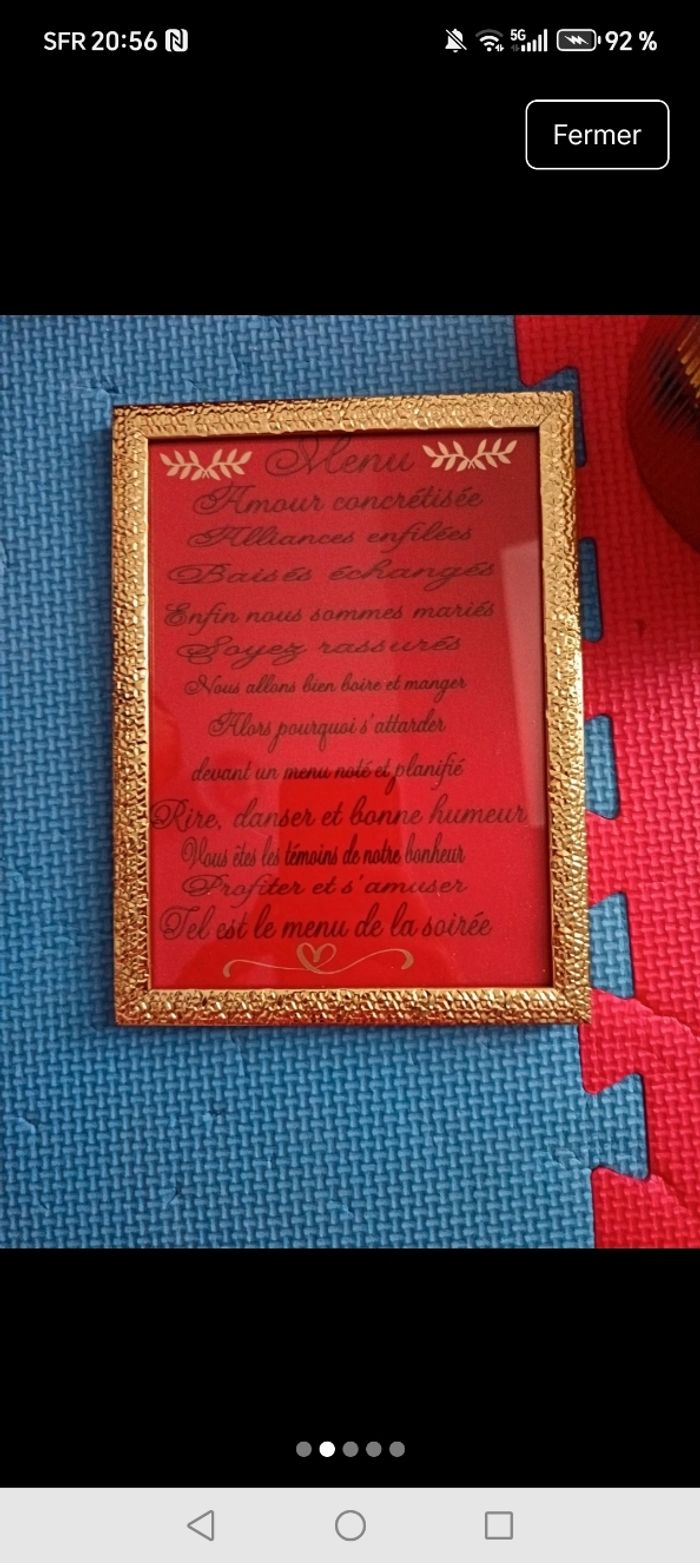 SFR 20:56
5G
92 %
Fermer
Menu
Amour concrétisée
Alliances enfilées
Baisés échangés
Enfin nous sommes mariés
Soyez rassurés
Nous allons bien boire et manger
Alors pourquoi s'attarder
devant un menu noté et planifié
Rire, danser et bonne humeur
Vous êtes les témoins de notre bonheur
Profiter et s'amuser
Tel est le menu de la soirée